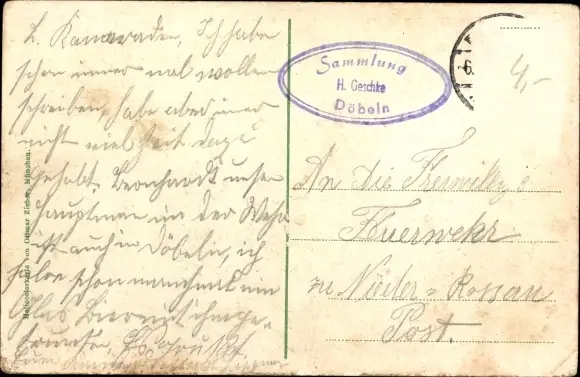 L. Kamaraden, Ich habe
schon immer mal wollen
schreiben, habe aber immer
nicht viel Zeit dazu
gehabt. Bernhardt unser
Hauptman in der Wehr
ist auch in Döbeln, ich
habe schon manchmal ein
Glas Bier mit ihm ge-
trunken. Es grüßt
Euer
Sammlung
H. Geschke
Döbeln
6.
4,-
An die Freiwillige
Feuerwehr
zu Nieder-Rossau
Post.
Heliocolorkarte von Ottmar Zieher, München.